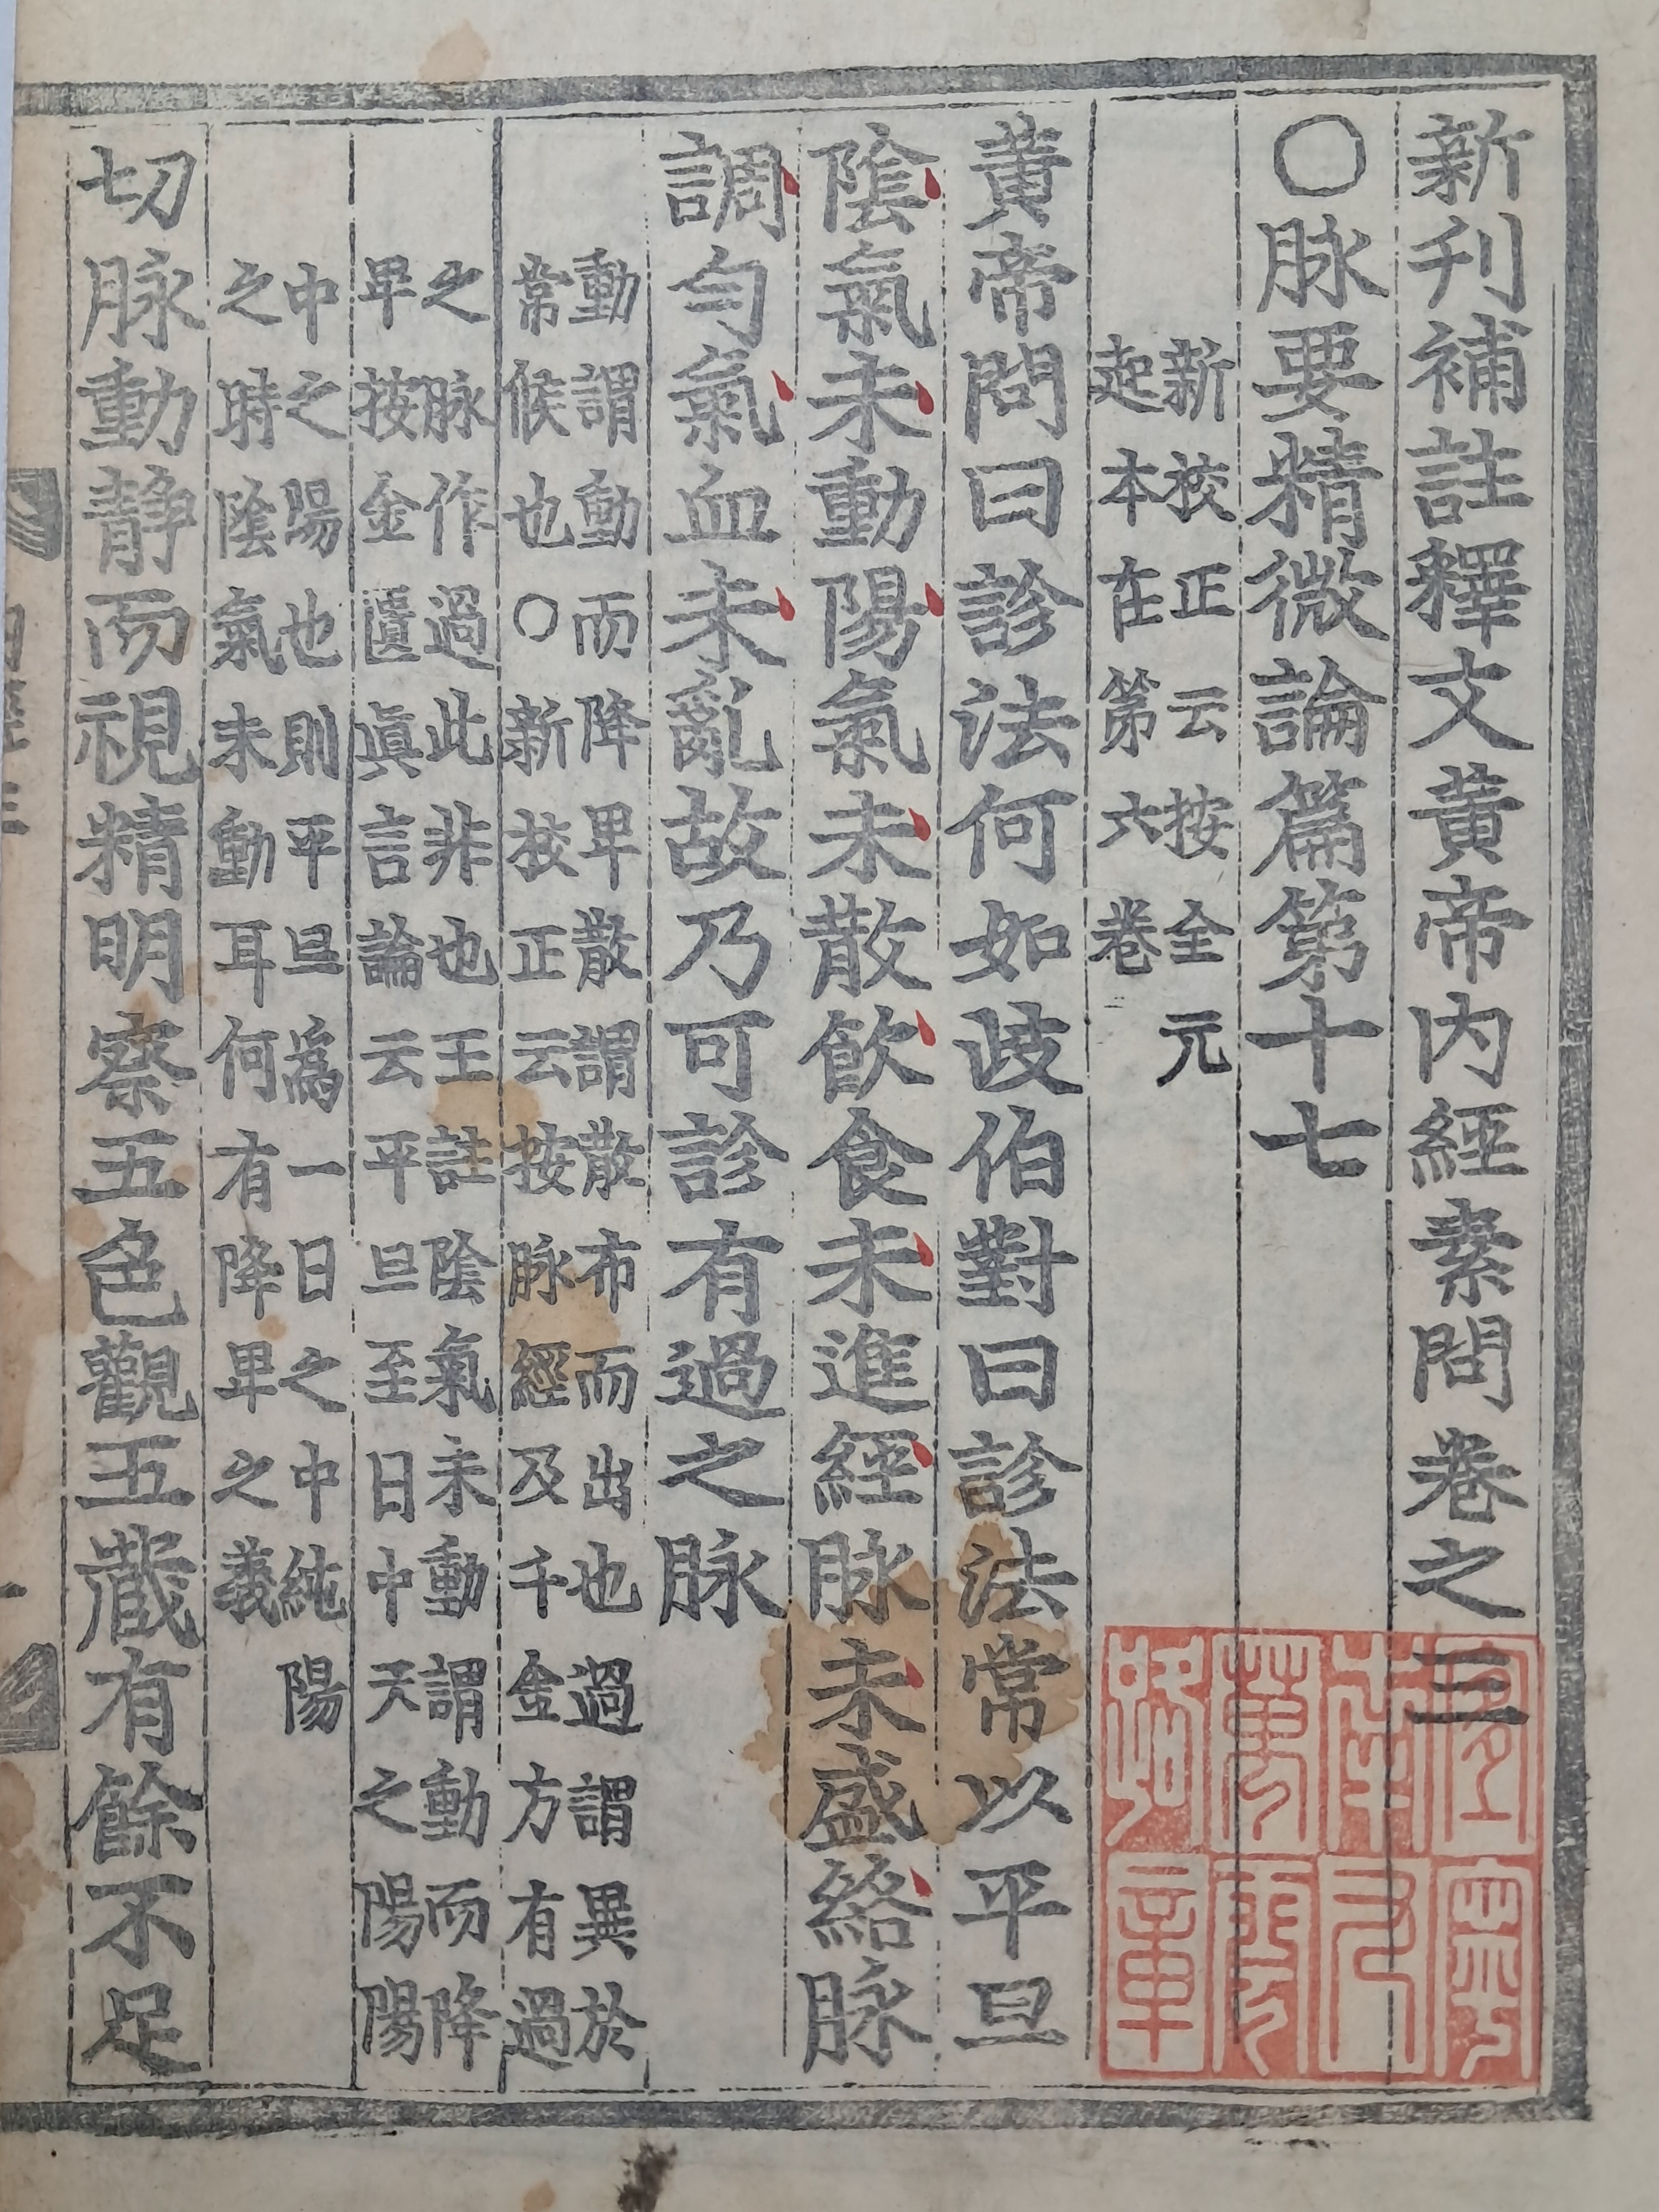 新刋補註釋文黃帝内經素問卷之三
○脉要精微論篇第十七
新校正云按全元
起本在第六卷
黃帝問曰診法何如歧伯對曰診法常以平旦
隂氣未動陽氣未散飲食未進經脉未盛絡脉
調匀氣血未亂故乃可診有過之脉
動謂動而降卑散謂散布而出也過謂異於
常候也○新校正云按脉經及千金方有過
之脉作過此非也王註隂氣未動謂動而降
卑按金匱眞言論云平旦至日中天之陽陽
中之陽也則平旦爲一日之中純陽
之時隂氣未動耳何有降卑之義
切脉動静而視精明察五色觀五藏有餘不足